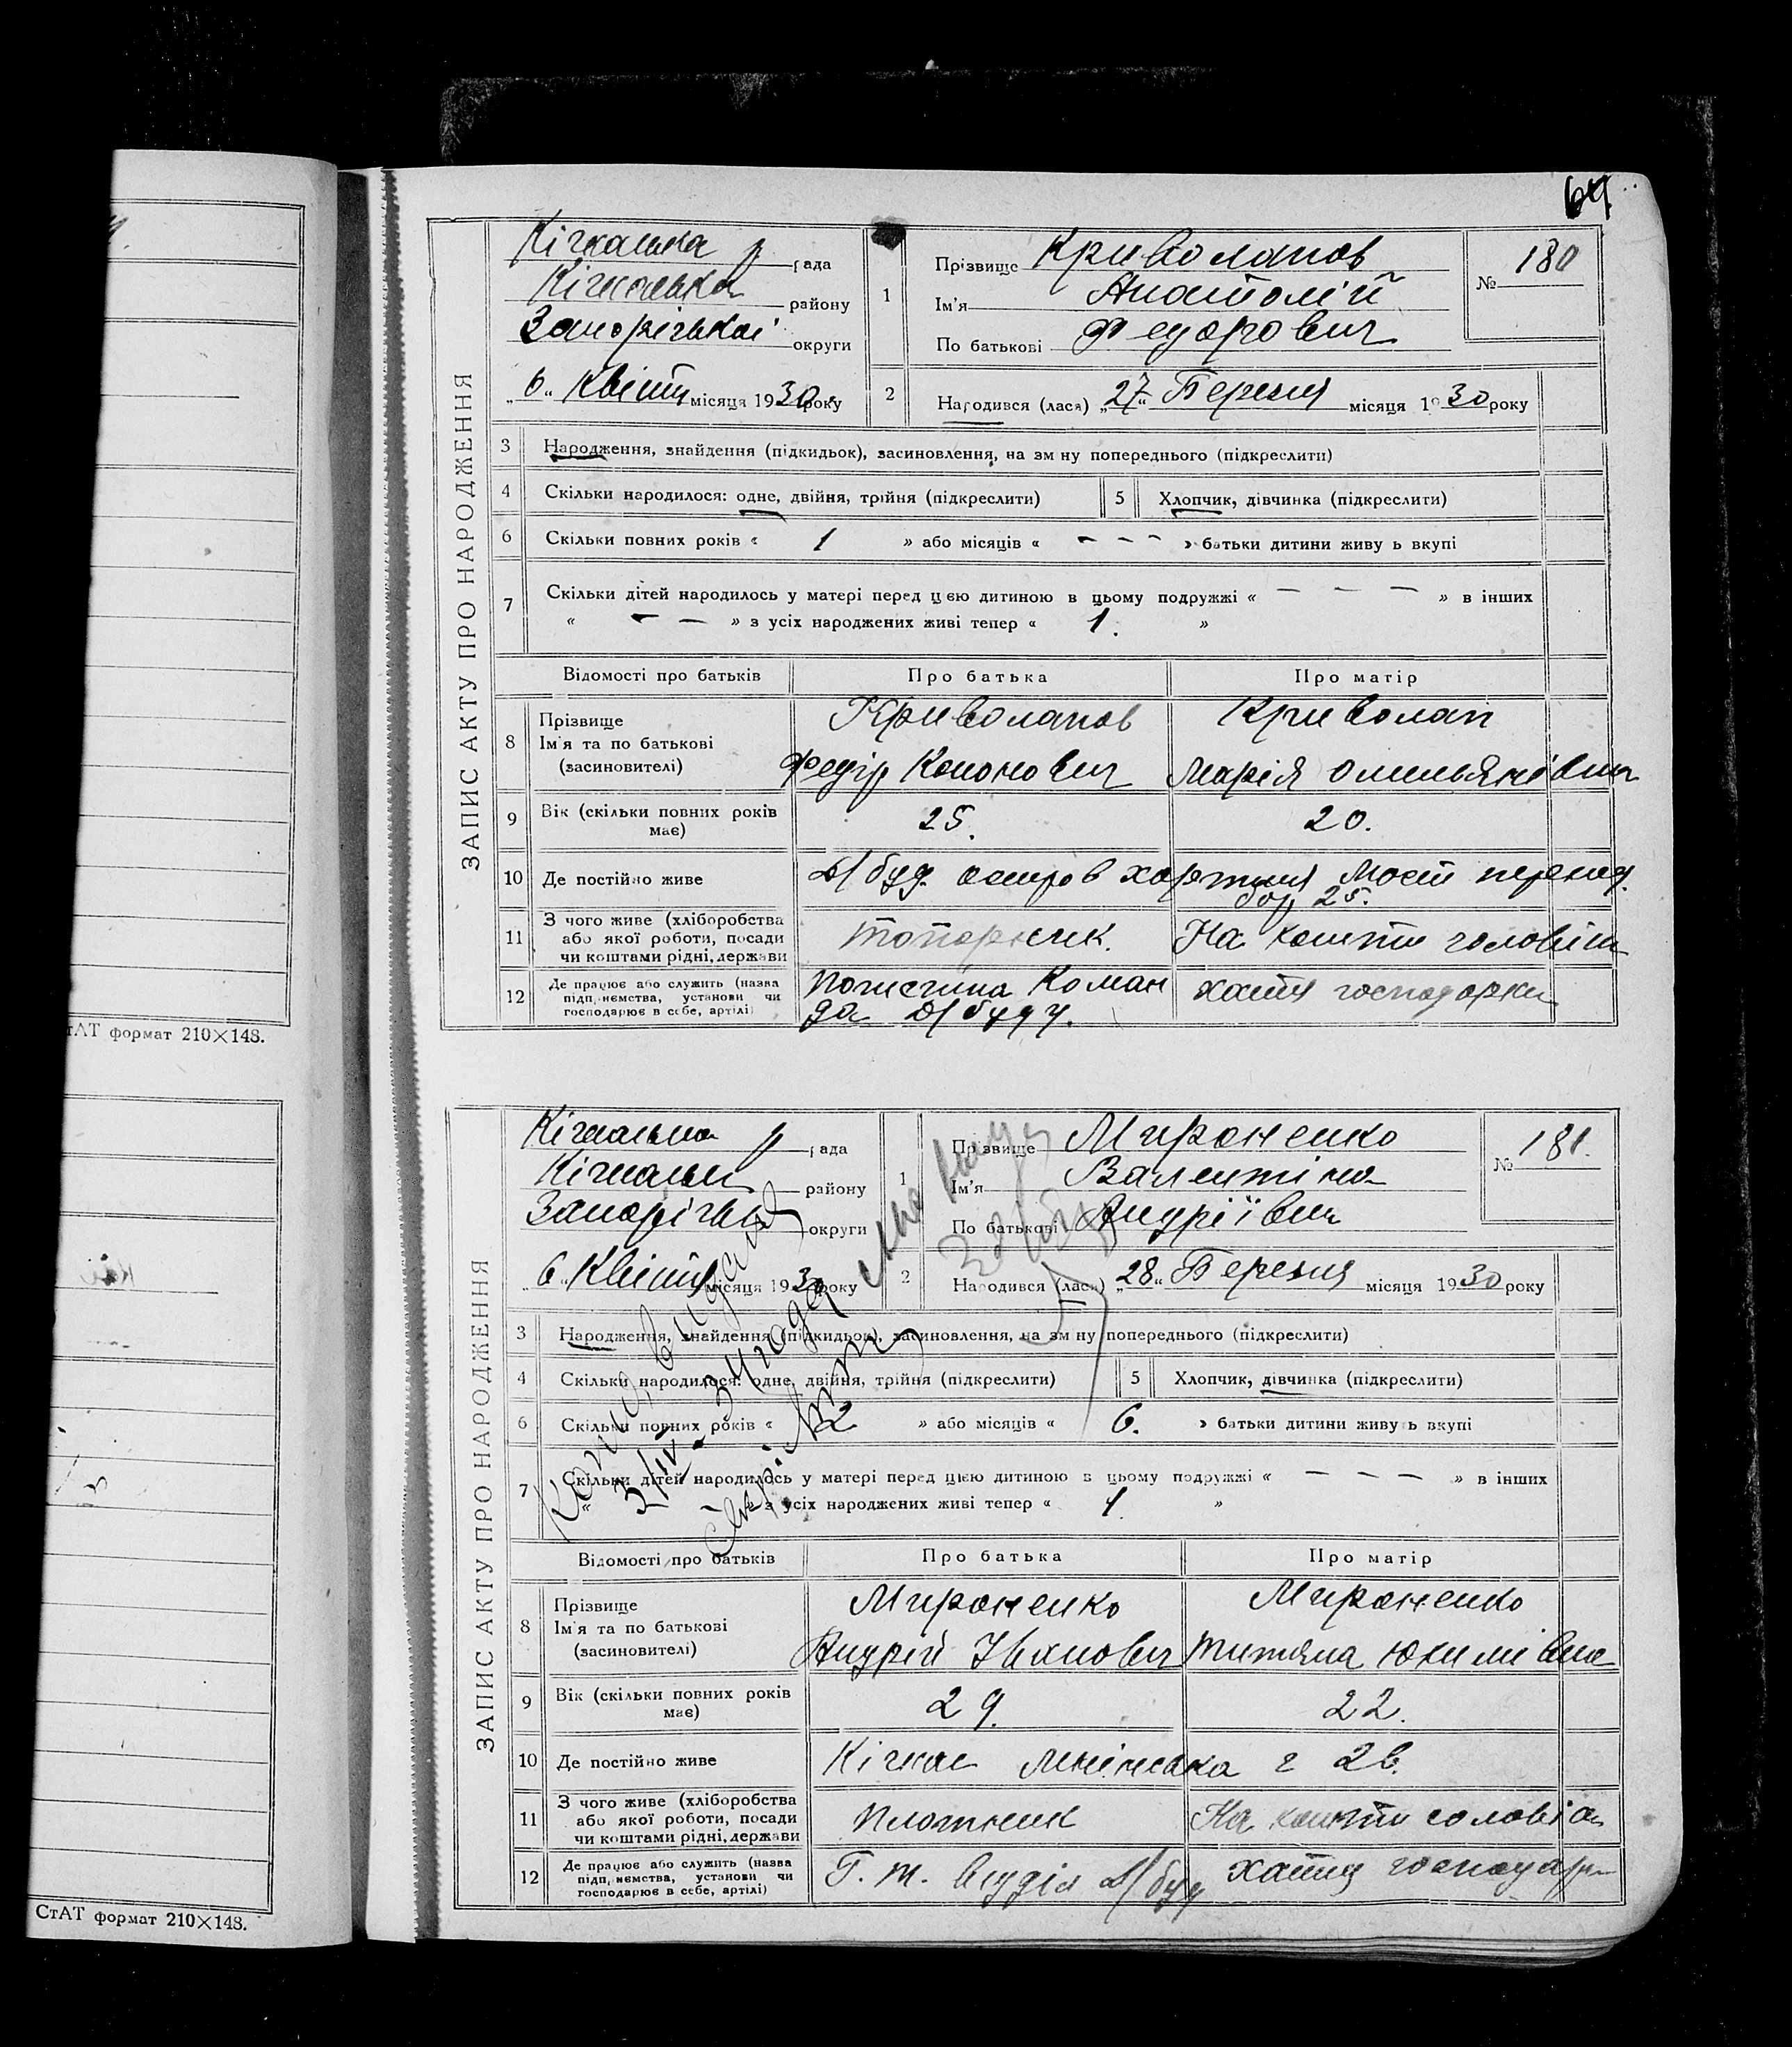 64
ЗАПИС АКТУ ПРО НАРОДЖЕННЯ
Кічкаська р рада
Кічкаська району
Запоріської округи
„6“ Квітн місяця 1930 року
1
Прізвище Криволапов
Ім'я Анатолій
По батькові Федорович
№ 180
2
Народився (лася) „27“ Березня місяця 1930 року
3 Народження, знайдення (підкидьок), засиновлення, на зм ну попереднього (підкреслити)
4 Скільки народилося: одне, двійня, трійня (підкреслити) 5 Хлопчик, дівчинка (підкреслити)
6 Скільки повних років « 1 » або місяців « – – – » батьки дитини живу ь вкупі
7 Скільки дітей народилось у матері перед цією дитиною в цьому подружжі « – – – » в інших
« – – » з усіх народжених живі тепер « 1. »
Відомості про батьків Про батька Про матір
8 Прізвище Ім'я та по батькові (засновителі)
Криволапов Криволап
Федір Кононович Марія Омельянівна
9 Вік (скільки повних років має) 25. 20.
10 Де постійно живе Д/буд. острів Хортиця Мост переход.
бар 25.
11 З чого живе (хліборобства або якої роботи, посади чи коштами рідні, держави
Топорник. На кошти чоловіка
12 Де працює або служить (назва підп, немства, установи чи господарює в себе, артілі)
Пожежна Коман
да Д/буду. хатня господарка
тАТ формат 210×148.
ЗАПИС АКТУ ПРО НАРОДЖЕННЯ
Кічкаська р рада
Кічкаськ району
Запорізьк округи
„6“ Квітня місяця 1930 року
1
Прізвище Мироненко
Ім'я Валентіна
По батькові Андріївна
№ 181.
2
Народився (лася) „28“ Березня місяця 1930 року
3 Народження, знайдення (підкидьок), засиновлення, на зм ну попереднього (підкреслити)
4 Скільки народилося: одне, двійня, трійня (підкреслити) 5 Хлопчик, дівчинка (підкреслити)
6 Скільки повних років « » або місяців « 6. » батьки дитини живуть вкупі
7 Скільки дітей народилось у матері перед цією дитиною в цьому подружжі « – – – » в інших
« » з усіх народжених живі тепер « 1. »
Відомості про батьків Про батька Про матір
8 Прізвище Ім'я та по батькові (засиновителі)
Мироненко Мироненко
Андрій Іванович Титяна Юхимівна
9 Вік (скільки повних років має) 29. 22.
10 Де постійно живе Кічкас 2в.
11 З чого живе (хліборобства або якої роботи, посади чи коштами рідні, держави
Плотник На кошти чоловіка
12 Де працює або служить (назва підп, немства, установи чи господарює в себе, артілі)
Г. Т. Д/буд хатня господарк
Копия видана
34 года
СтАТ формат 210×148.